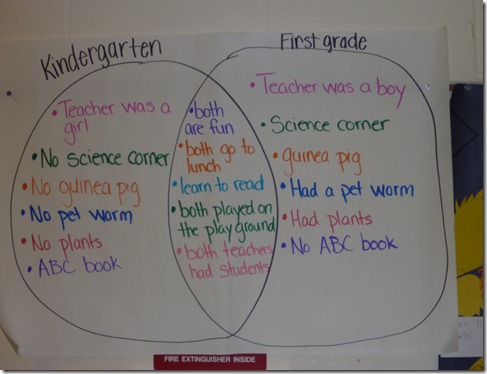 Kindergarten
First grade
• Teacher was a
girl
• No science corner
• No guinea pig
• No pet worm
• No plants
• ABC book
• both
are fun
• both go to
lunch
• learn to read
• both played on
the play ground
• both teachers
had students
• Teacher was a boy
• Science corner
• guinea pig
• Had a pet worm
• Had plants
• No ABC book
FIRE EXTINGUISHER INSIDE